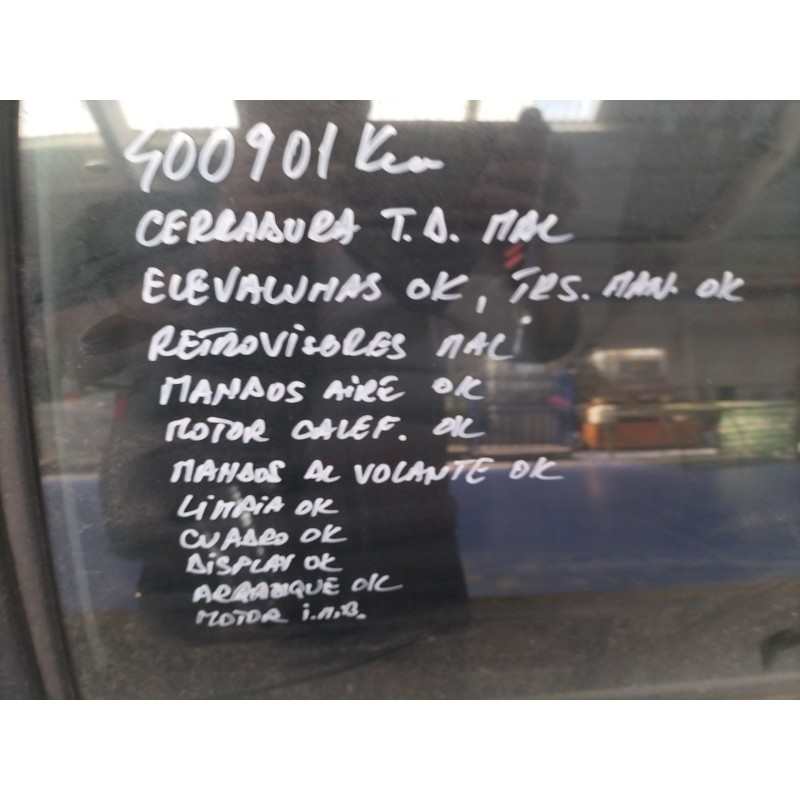 400901 Km
CERRADURA T.D. MAL
ELEVALUNAS OK, TRS. MAN. OK
RETROVISORES MAL
MANDOS AIRE OK
MOTOR CALEF. OK
MANDOS AL VOLANTE OK
LIMPIA OK
CUADRO OK
DISPLAY OK
ARRANQUE OK
MOTOR i.M.B.